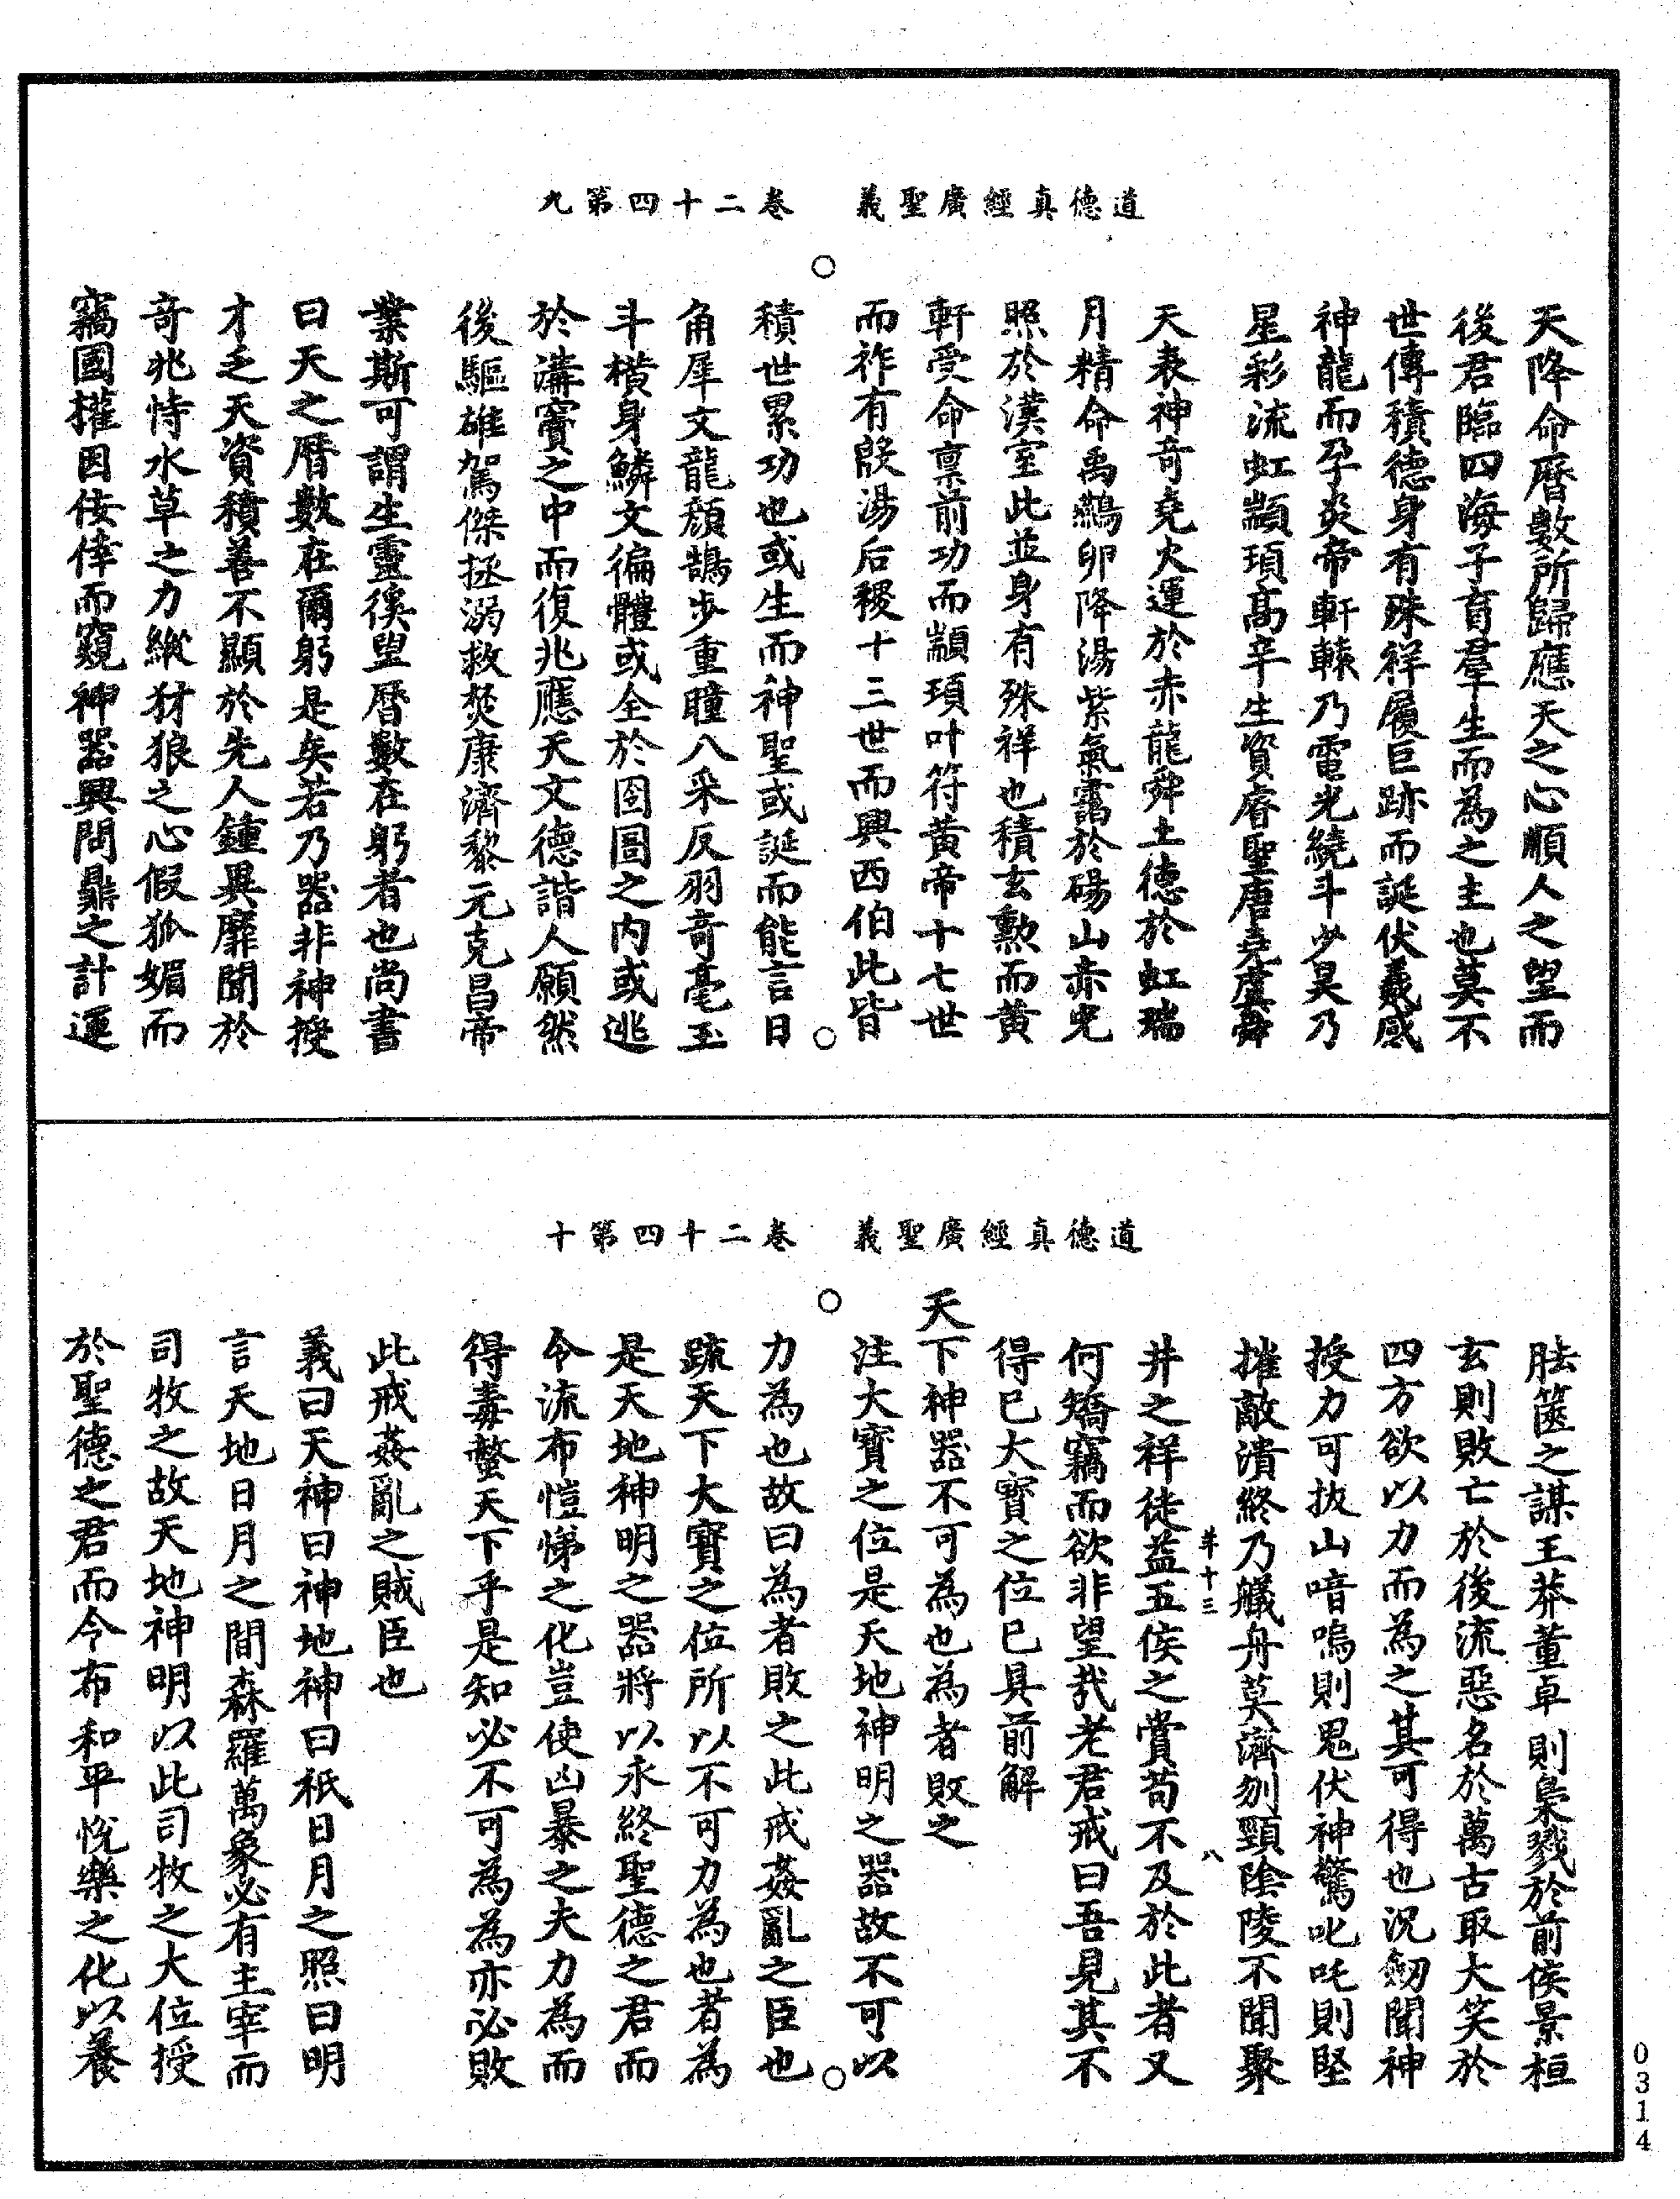 道德真經廣聖義　卷二十四第九
天降命曆數所歸應天之心順人之望而
後君臨四海子育羣生而為之主也莫不
世傳積德身有殊祥履巨跡而誕伏羲感
神龍而孕炎帝軒轅乃電光繞斗少昊乃
星彩流虹顓頊高辛生資睿聖唐堯虞舜
天表神奇堯火運於赤龍舜土德於虹瑞
月精命禹鷰卵降湯紫氣靄於碭山赤光
照於漢室此並身有殊祥也積玄勳而黃
軒受命稟前功而顓頊叶符黃帝十七世
而祚有殷湯后稷十三世而興西伯此皆
積世累功也或生而神聖或誕而能言日
角犀文龍顏鵠步重瞳八采反羽奇毫玉
斗橫身鱗文徧體或全於囹圄之內或逃
於溝竇之中而復兆應天文德諧人願然
後驅雄駕傑拯溺救焚康濟黎元克昌帝
業斯可謂生靈徯望曆數在躬者也尚書
曰天之曆數在爾躬是矣若乃器非神授
才乏天資積善不顯於先人鍾異靡聞於
奇兆恃水草之力縱豺狼之心假狐媚而
竊國權因佞倖而窺神器興問鼎之計運
道德真經廣聖義　卷二十四第十
胠篋之謀王莽董卓則梟戮於前侯景桓
玄則敗亡於後流惡名於萬古取大笑於
四方欲以力而為之其可得也況劒聞神
授力可扳山喑嗚則鬼伏神驚叱吒則堅
摧敵潰終乃艤舟莫濟刎頸陰陵不聞聚
井之祥徒益五侯之賞苟不及於此者又
何矯竊而欲非望哉老君戒曰吾見其不
得已大寶之位已具前解
天下神器不可為也為者敗之
注大寶之位是天地神明之器故不可以
力為也故曰為者敗之此戒姦亂之臣也
疏天下大寶之位所以不可力為也者為
是天地神明之器將以永終聖德之君而
令流布愷悌之化豈使凶暴之夫力為而
得毒螫天下乎是知必不可為為亦必敗
此戒姦亂之賊臣也
義曰天神曰神地神曰祇日月之照曰明
言天地日月之間森羅萬象必有主宰而
司牧之故天地神明以此司牧之大位授
於聖德之君而令布和平悅樂之化以養
0314